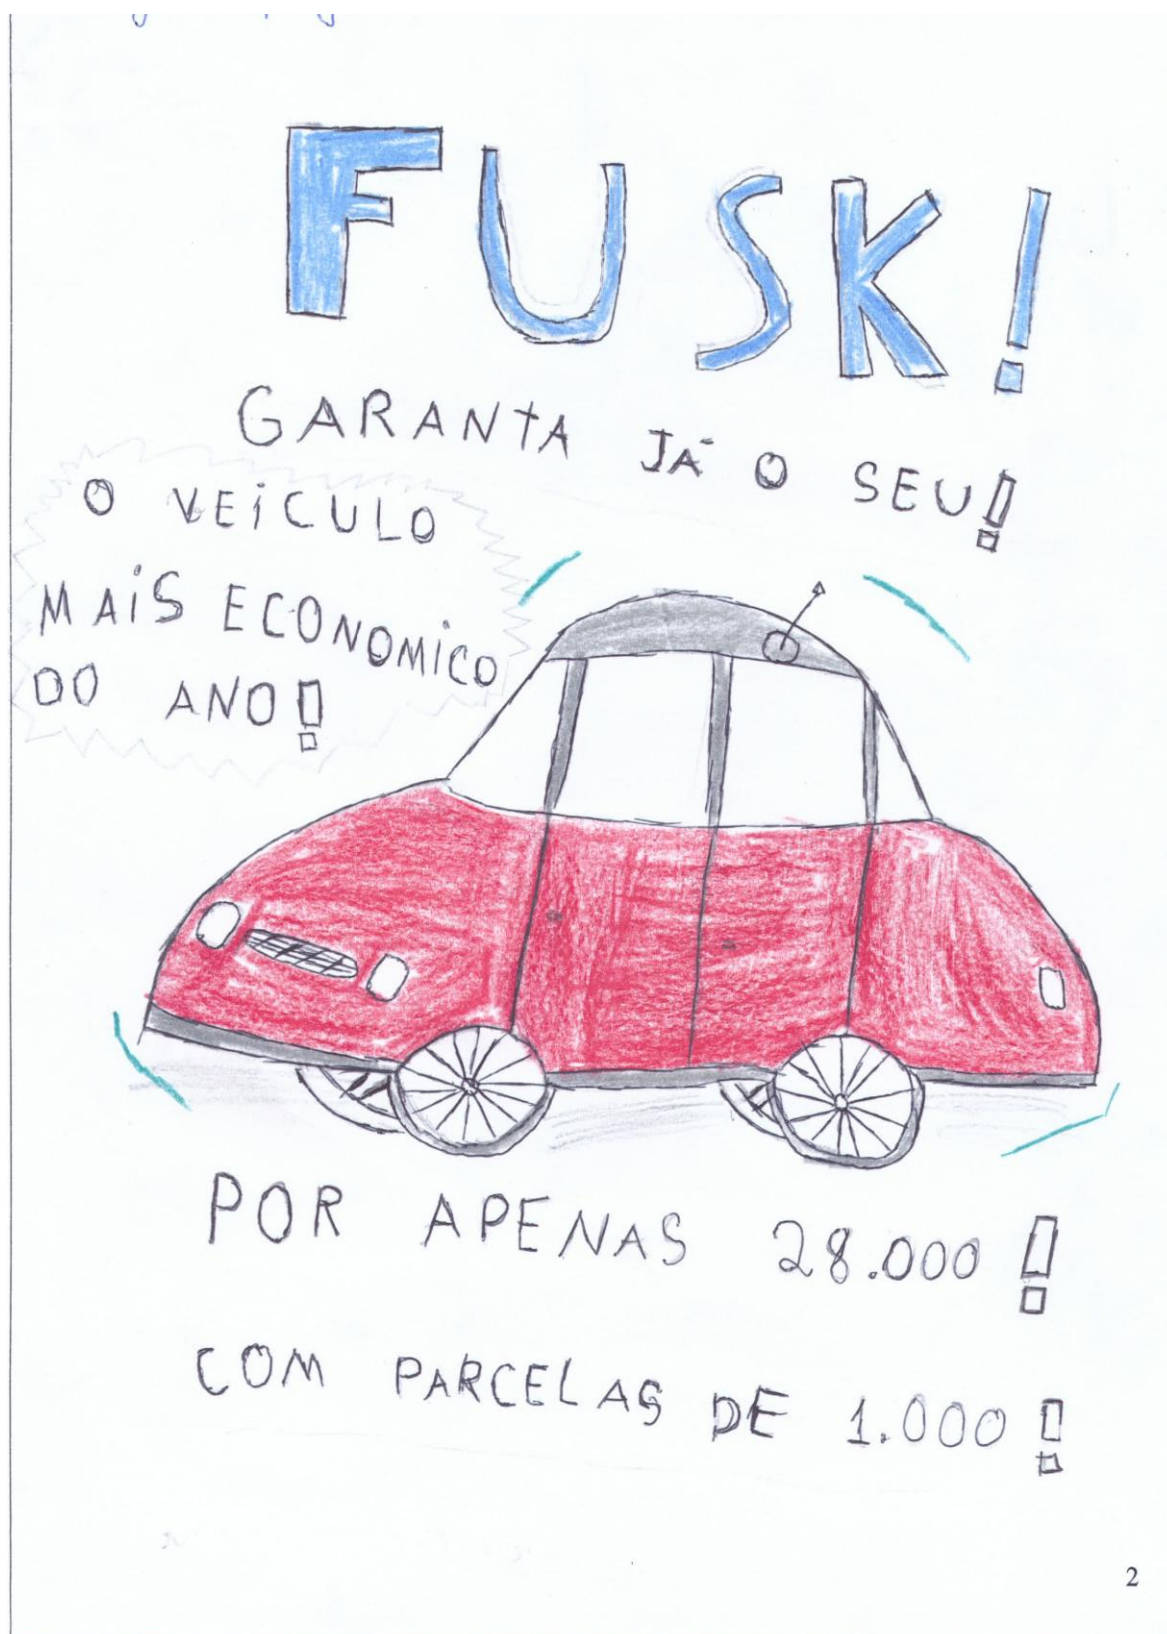 FUSK!
GARANTA JÁ O SEU!
O VEÍCULO
MAIS ECONOMICO
DO ANO!
POR APENAS 28.000!
COM PARCELAS DE 1.000!
2